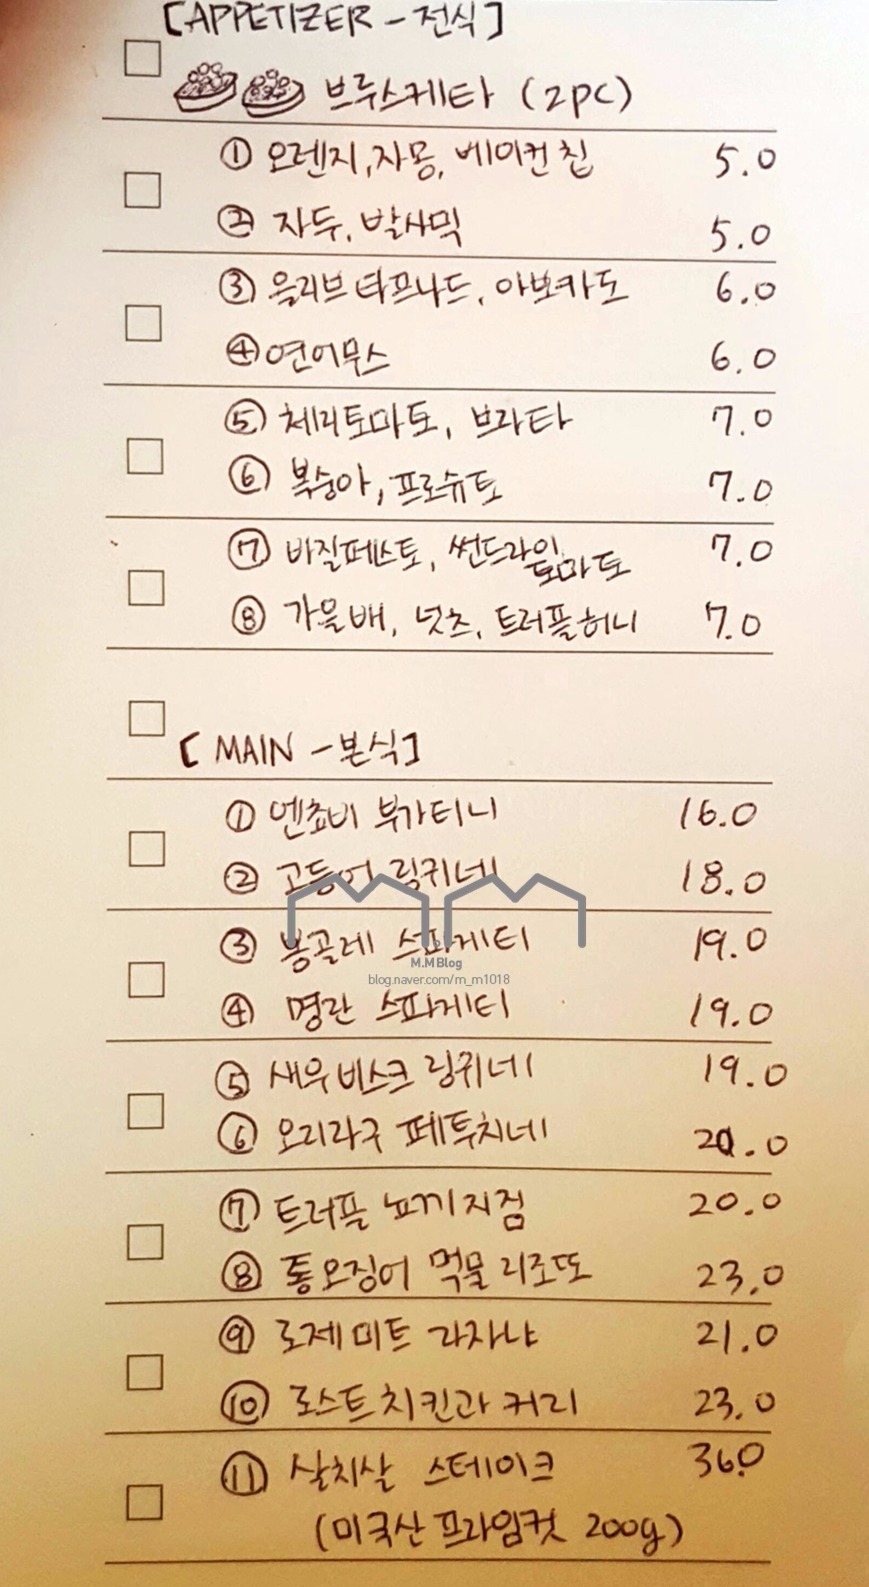 [APPETIZER - 전식]
브루스케타 (2pc)
① 오렌지, 자몽, 베이컨 칩 5.0
② 자두, 발사믹 5.0
③ 올리브 타프나드, 아보카도 6.0
④ 연어무스 6.0
⑤ 체리토마토, 브라타 7.0
⑥ 복숭아, 프로슈토 7.0
⑦ 바질페스토, 썬드라이 토마토 7.0
⑧ 가을배, 넛츠, 트러플허니 7.0
[MAIN - 본식]
① 엔쵸비 부가티니 16.0
② 고등어 링귀네 18.0
③ 봉골레 스파게티 19.0
M.M Blog
blog.naver.com/m_m1018
④ 명란 스파게티 19.0
⑤ 새우 비스크 링귀네 19.0
⑥ 오리라구 페투치네 20.0
⑦ 트러플 뇨끼지점 20.0
⑧ 통오징어 먹물 리조또 23.0
⑨ 로제 미트 라자냐 21.0
⑩ 로스트 치킨과 커리 23.0
⑪ 살치살 스테이크 36.0
(미국산 프라임컷 200g)